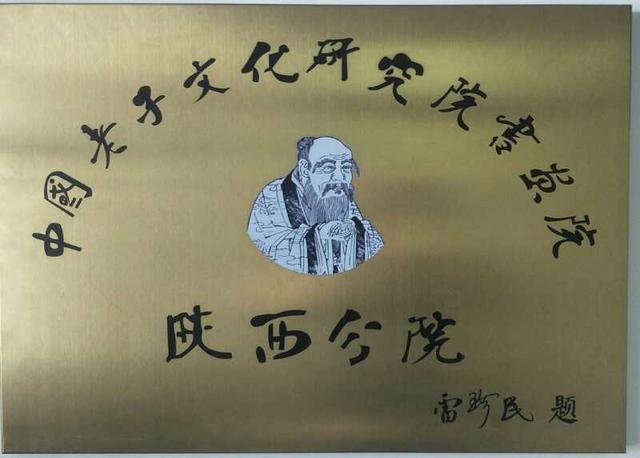 中國老子文化研究院書畫院
陕西分院
雷珍民 题